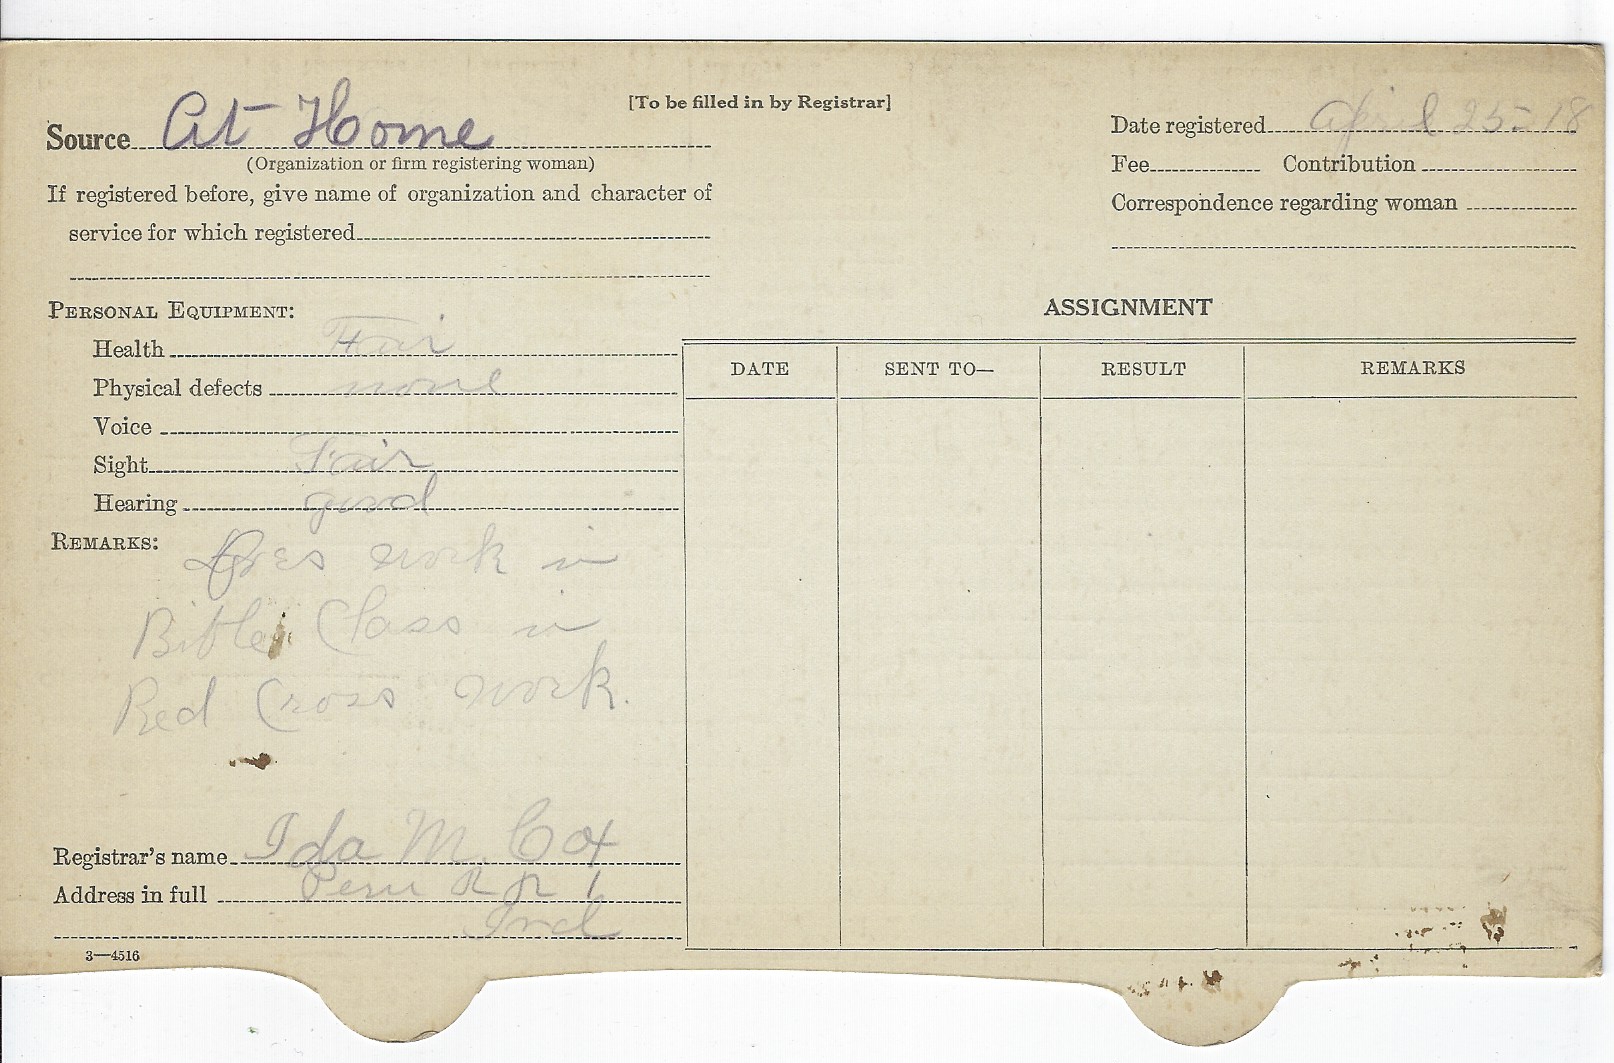 [To be filled in by Registrar]
Source At Home
(Organization or firm registering woman)
If registered before, give name of organization and character of
service for which registered
Date registered April 25-18
Fee Contribution
Correspondence regarding woman
PERSONAL EQUIPMENT:
Health Fair
Physical defects none
Voice
Sight Fair
Hearing good
REMARKS:
Does work in
Bible Class in
Red Cross work.
Registrar's name Ida M. Cox
Address in full Peru R R 1
Ind
3—4516
ASSIGNMENT
DATE SENT TO— RESULT REMARKS